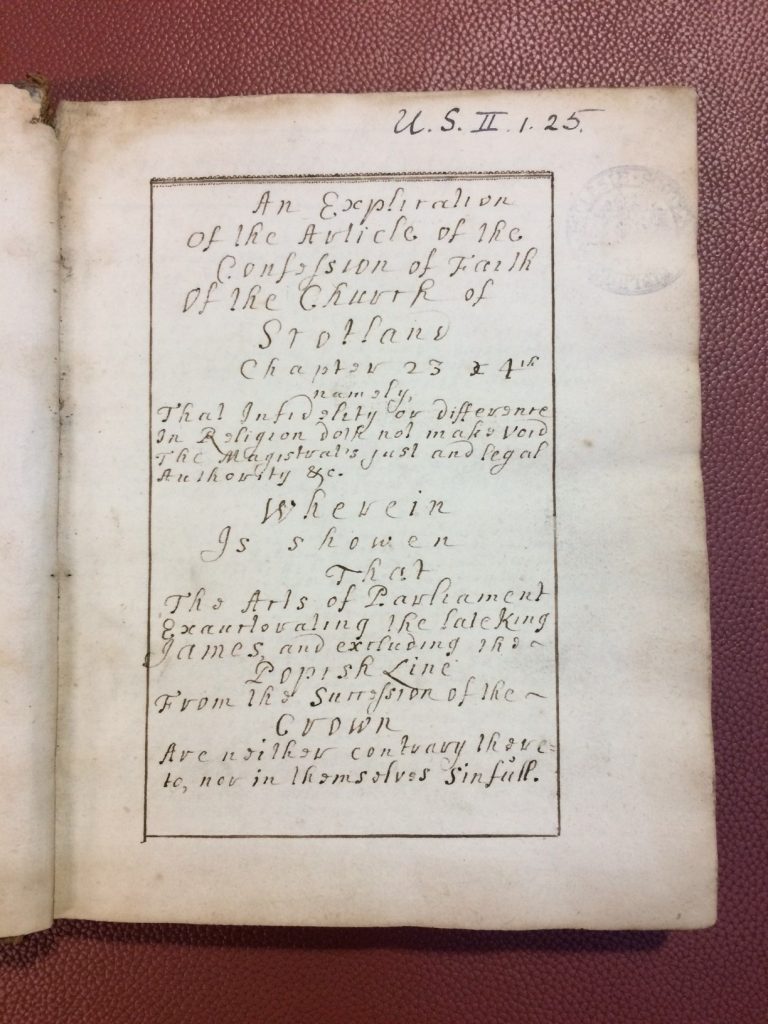 U. S. II. 1. 25.
An Explication
Of the Article of the
Confession of Faith
Of the Church of
Scotland
Chapter 23 & 4th
namely,
That Infidelity or difference
In Religion doth not make void
The Magistrat's just and legal
Authority &c.
Wherein
Is showen
That
The Acts of Parliament
Exauctorating the late King
James, and excluding the
Popish Line
From the Succession of the
Crown
Are neither contrary there=
to, nor in themselves Sinfull.